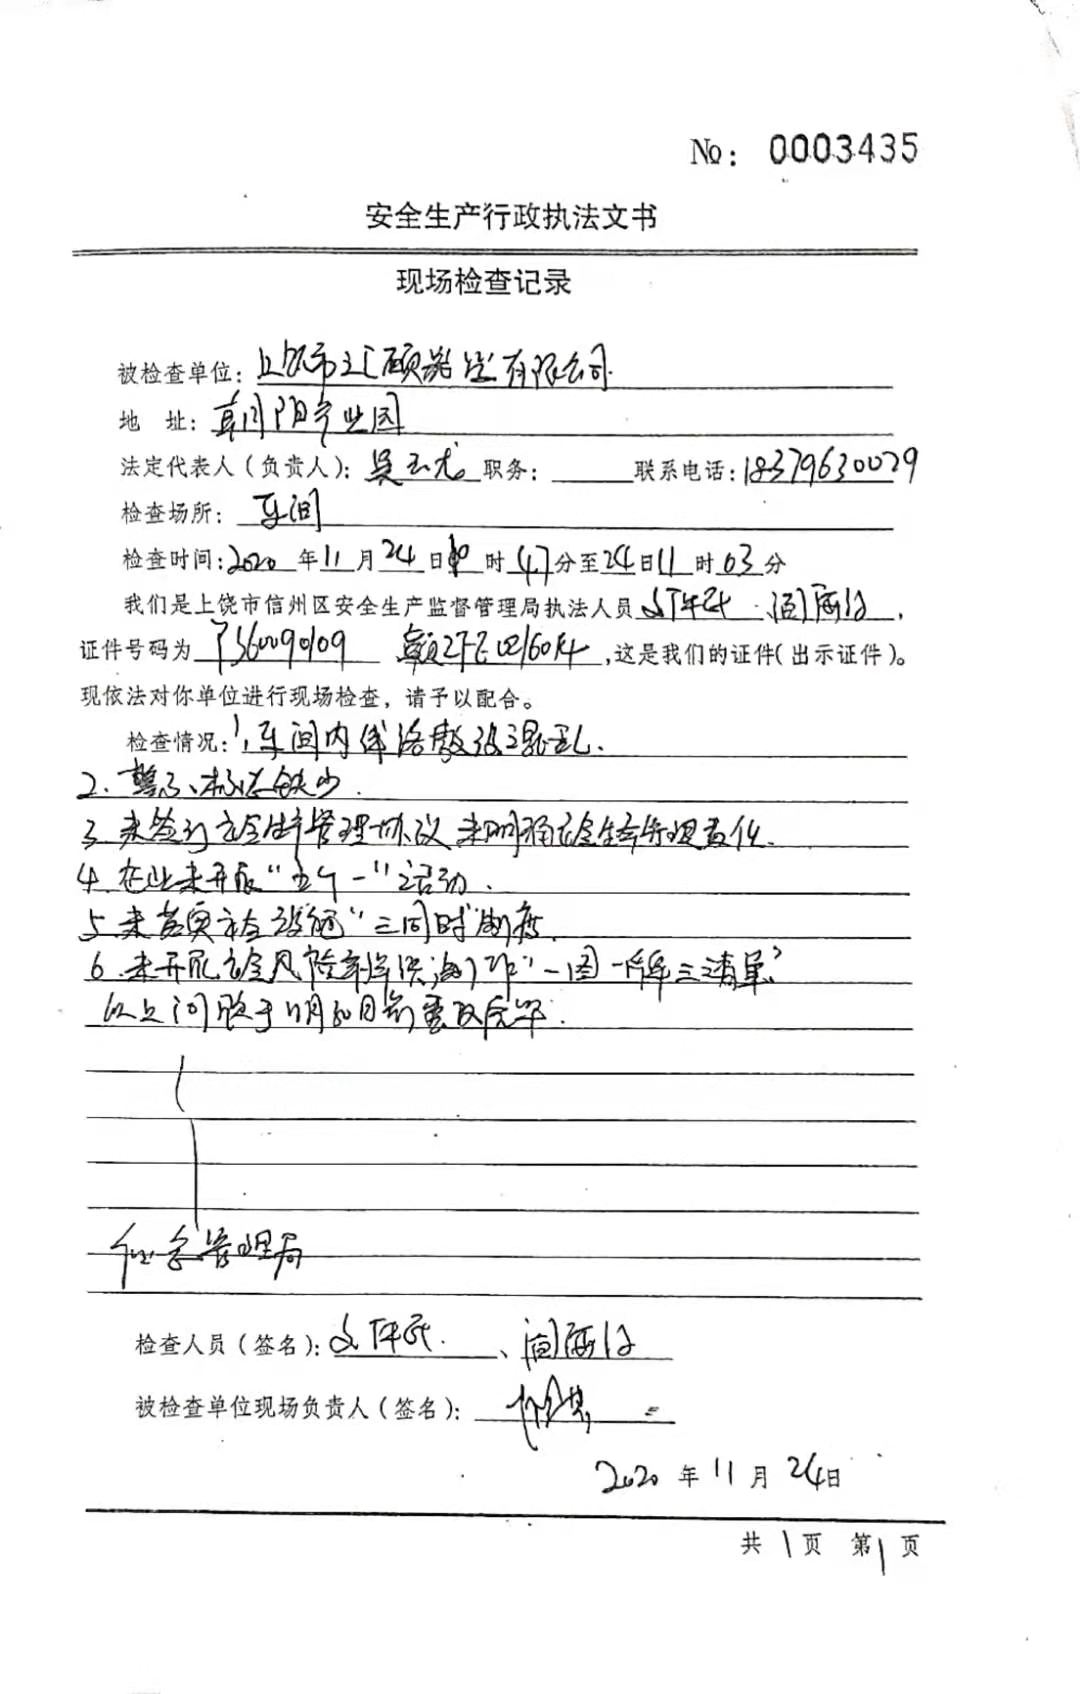 №: 0003435
安全生产行政执法文书
现场检查记录
被检查单位: 上饶市汇颐 有限公司
地 址: 朝阳产业园
法定代表人(负责人): 吴 龙 职务: 联系电话: 18379630029
检查场所: 车间
检查时间: 2020 年 11 月 24 日 10 时 47 分至 24 日 11 时 03 分
我们是上饶市信州区安全生产监督管理局执法人员 、
证件号码为 ,这是我们的证件(出示证件)。
现依法对你单位进行现场检查,请予以配合。
检查情况: 1、车间内线路敷设混乱.
2. 警示标志缺少.
3. 未签订安全生产管理协议 未明确安全生产管理责任.
4. 企业未开展“五个一”活动.
5. 未落实安全设施“三同时”制度.
6. 未开展安全风险辨识 制作“一图一牌三清单”
以上问题于11月30日前整改完毕.
应急管理局
检查人员(签名): 、
被检查单位现场负责人(签名):
2020 年 11 月 24日
共 1 页 第 1 页